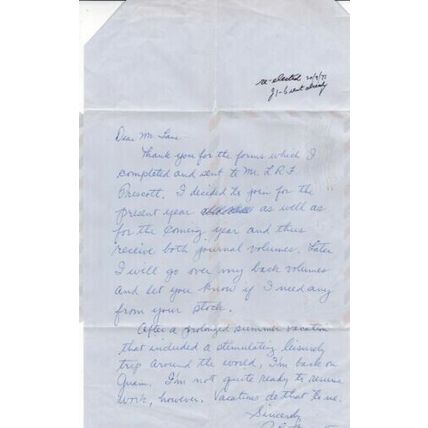 re-elected 20/9/71
J1-6 sent already
Dear Mr.
Thank you for the forms which I
completed and sent to Mr. L.R.F.
Prescott. I decided to join for the
present year as well as
for the coming year and thus
receive both journal volumes. Later
I will go over my back volumes
and let you know if I need any
from your stock.
After a prolonged summer vacation
that included a stimulating leisurely
trip around the world, I'm back on
Guam. I'm not quite ready to resume
work, however. Vacations do that to me.
Sincerely